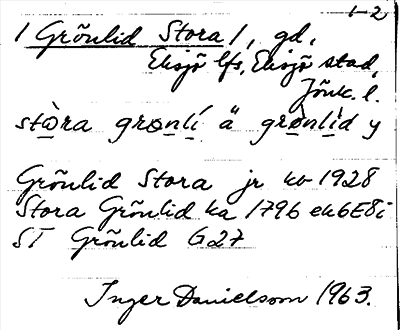 1-2
/ Grönlid Stora /, gd,
Eksjö lfs, Eksjö stad,
Jönk. l.
stὼra grωnlí ä grὼnlìd y
Grönlid Stora jr kb 1928
Stora Grönlid ka 1796 ek6E8i
ST Grönlid G27
Inger Danielsson 1963.